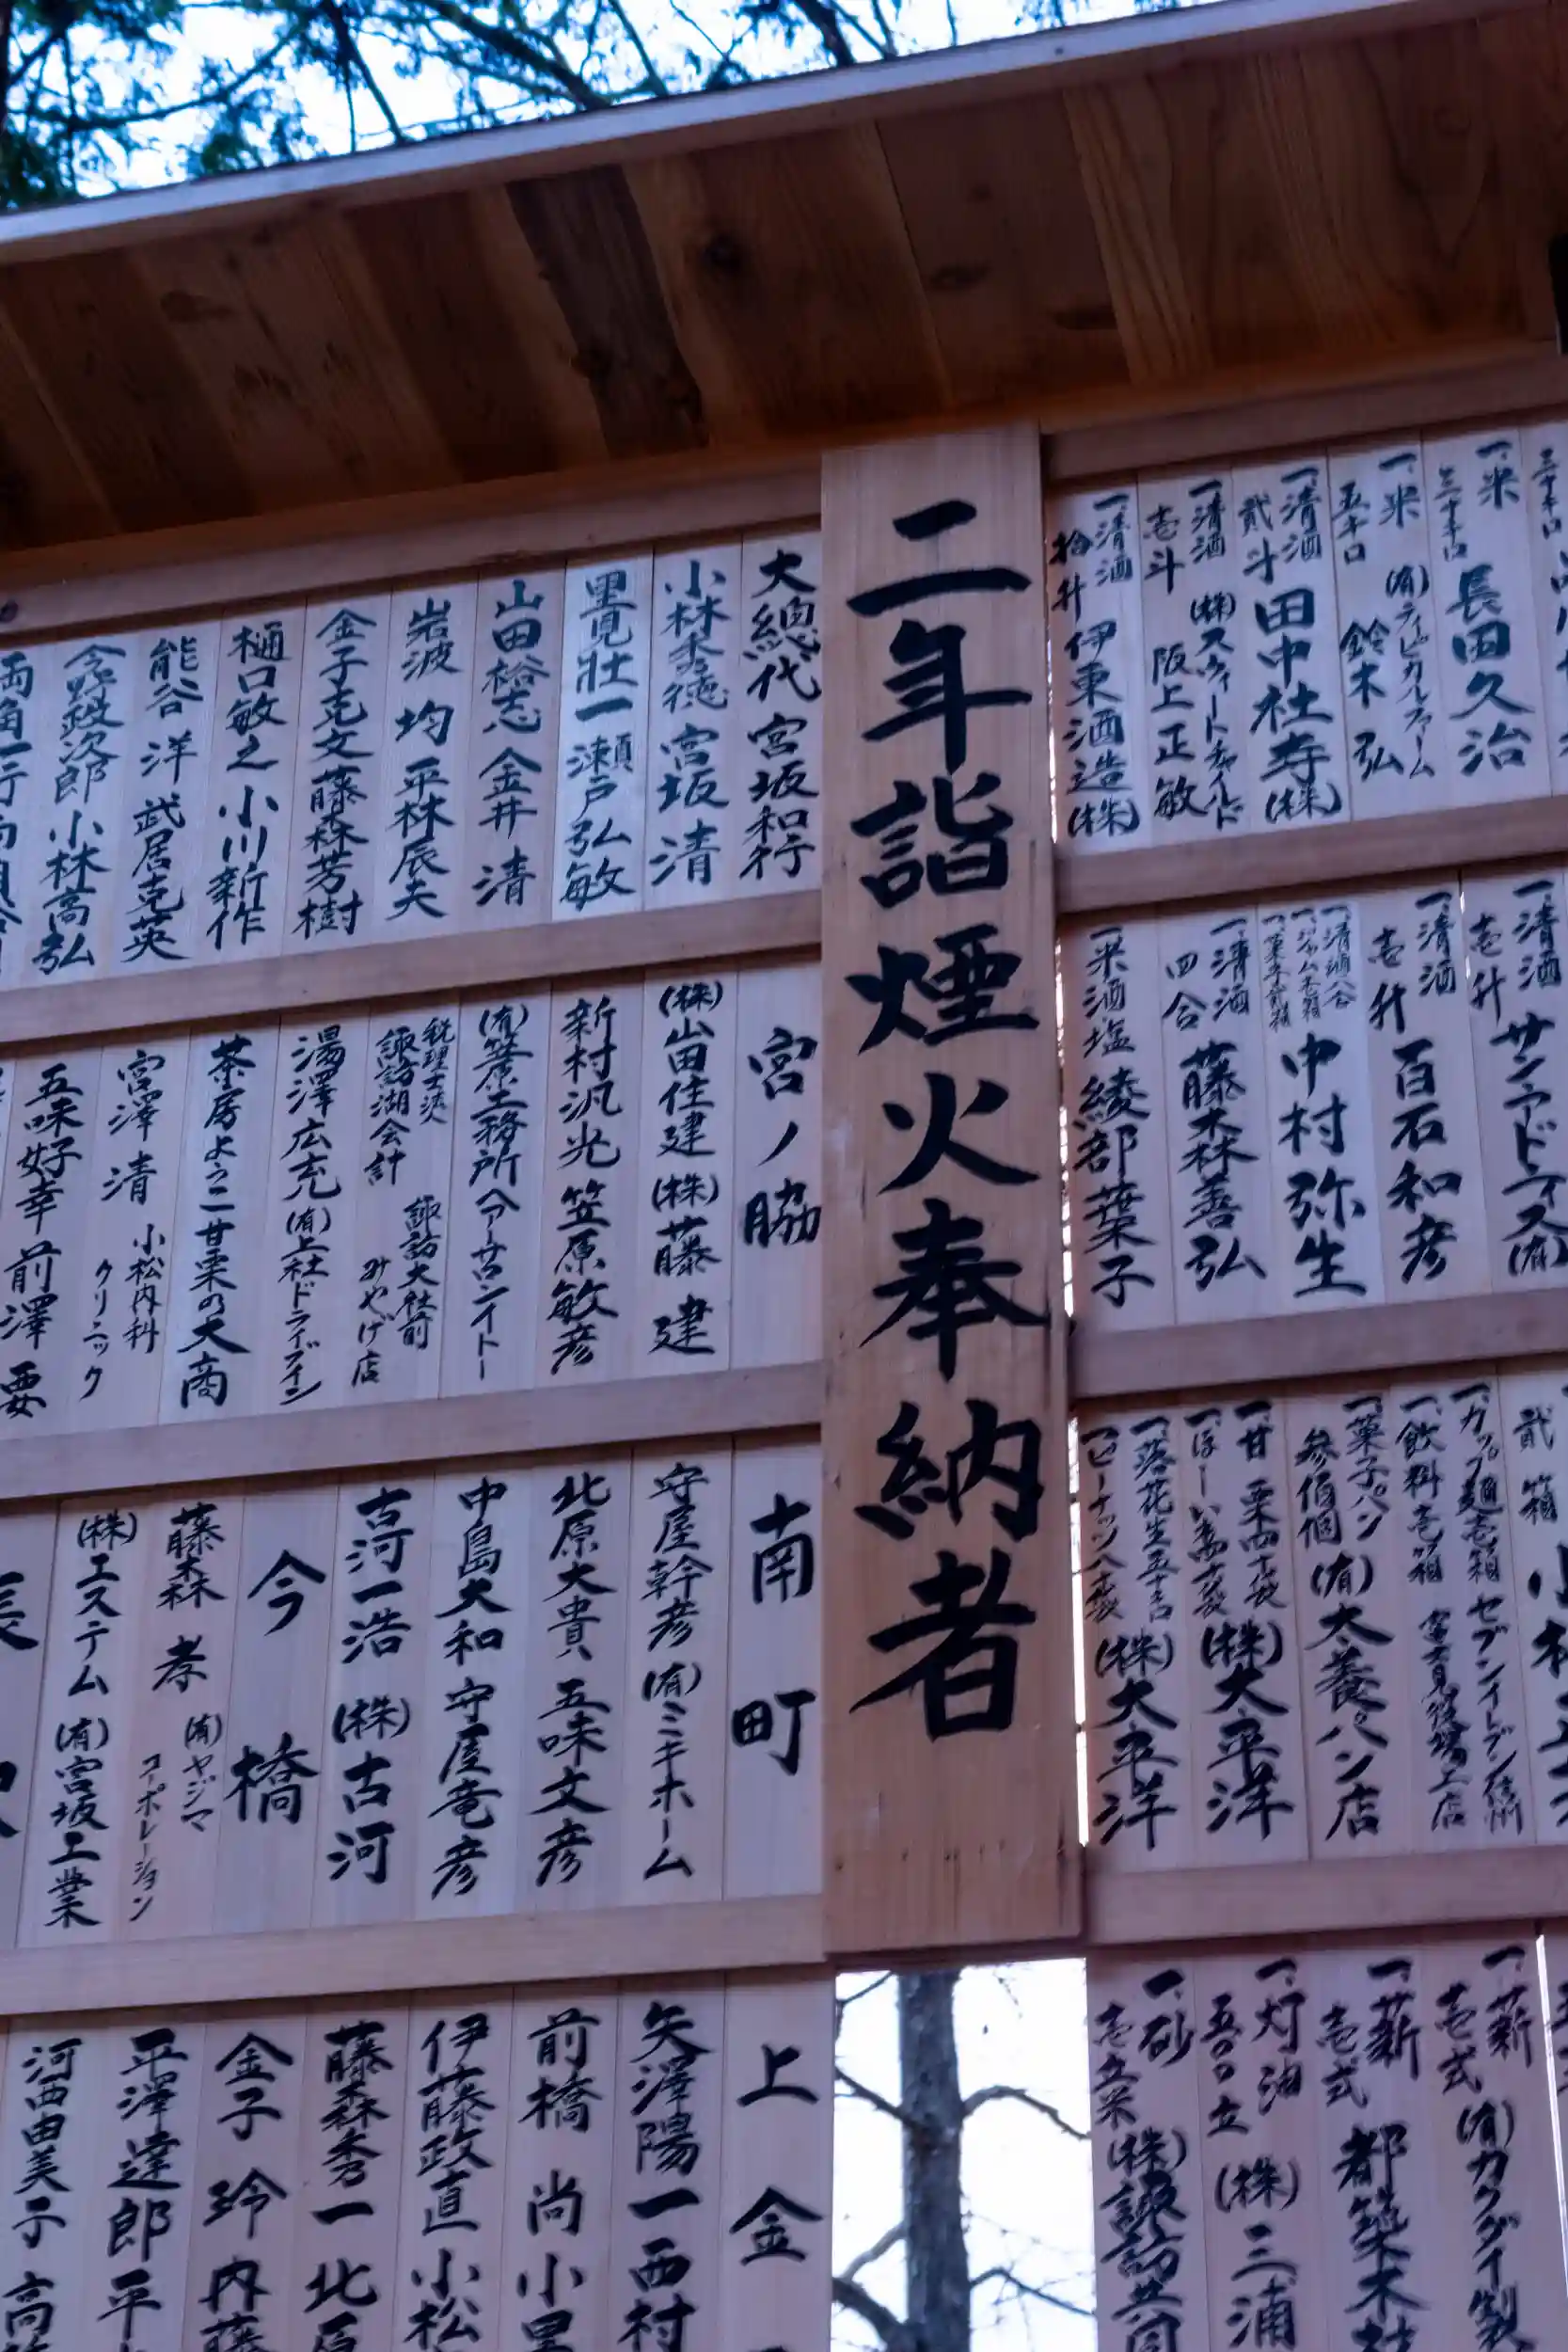 一清酒 壱升 サンラードライス(有)
一米 三十キロ 長田久治
一米 五十キロ (有)ティピカルファーム 鈴木 弘
一清酒 貮斗 田中社寺(株)
一清酒 壱斗 (株)スウィートチャイルド 阪上正敏
一清酒 拾升 伊東酒造(株)
一清酒 壱升 百石和彦
中村弥生
一清酒 四合 藤森善弘
一米酒塩 綾部葉子
一カップ麺壱箱 セブンイレブン信州
一飲料壱箱 富士見役場上店
一菓子パン 参佰個 (有)太養パン店
一甘栗四十袋 (株)大平洋
一落花生五十袋
一ピーナッツ八十袋 (株)大平洋
一薪 壱式 (有)カクダイ製
一薪 壱式 都築木材
一灯油 五〇〇立 (株)三浦
一砂 壱立米 (株)諏訪共同
二年詣煙火奉納者
大總代 宮坂和行
小林秀徳 宮坂 清
里見壯一 瀬戸弘敏
山田裕志 金井 清
岩波 均 平林辰夫
金子克文 藤森芳樹
樋口敏之 小川新作
熊谷 洋 武居克英
今井政次郎 小林高弘
宮ノ脇
(株)山田住建 (株)藤 建
新村汎光 笠原敏彦
(有)笠原工務所 ヘアーサロンイトー
税理士法人 諏訪湖会計 諏訪大社前 みやげ店
湯澤広充 (有)上社ドライブイン
茶房ようこ 甘栗の大商
宮澤 清 小松内科 クリニック
五味好幸 前澤 要
南町
守屋幹彦 (有)ミキホーム
北原大貴 五味文彦
中島大和 守屋竜彦
古河一浩 (株)古河
今橋
藤森 孝 (有)ヤジマ コーポレーション
(株)エステム (有)宮坂工業
上金
矢澤陽一 西村
前橋 尚 小里
伊藤政直 小松
藤森秀一 北原
金子 玲 内藤
平澤達郎 平
河西由美子 高